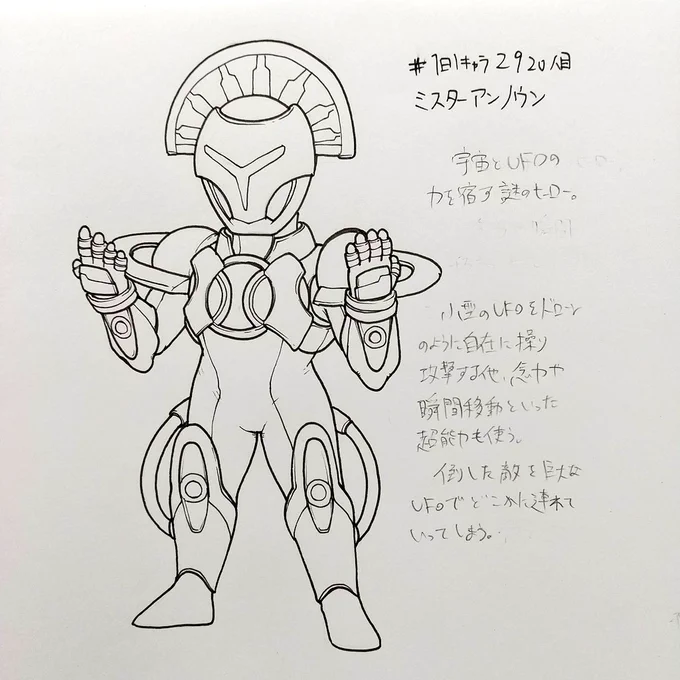 #1日1キャラ2920人目
ミスターアンノウン
宇宙とUFOの
力を宿す謎のヒーロー。
小型のUFOをドローン
のように自在に操り
攻撃する他、念力や
瞬間移動といった
超能力も使う。
倒した敵を巨大な
UFOでどこかに連れて
いってしまう。